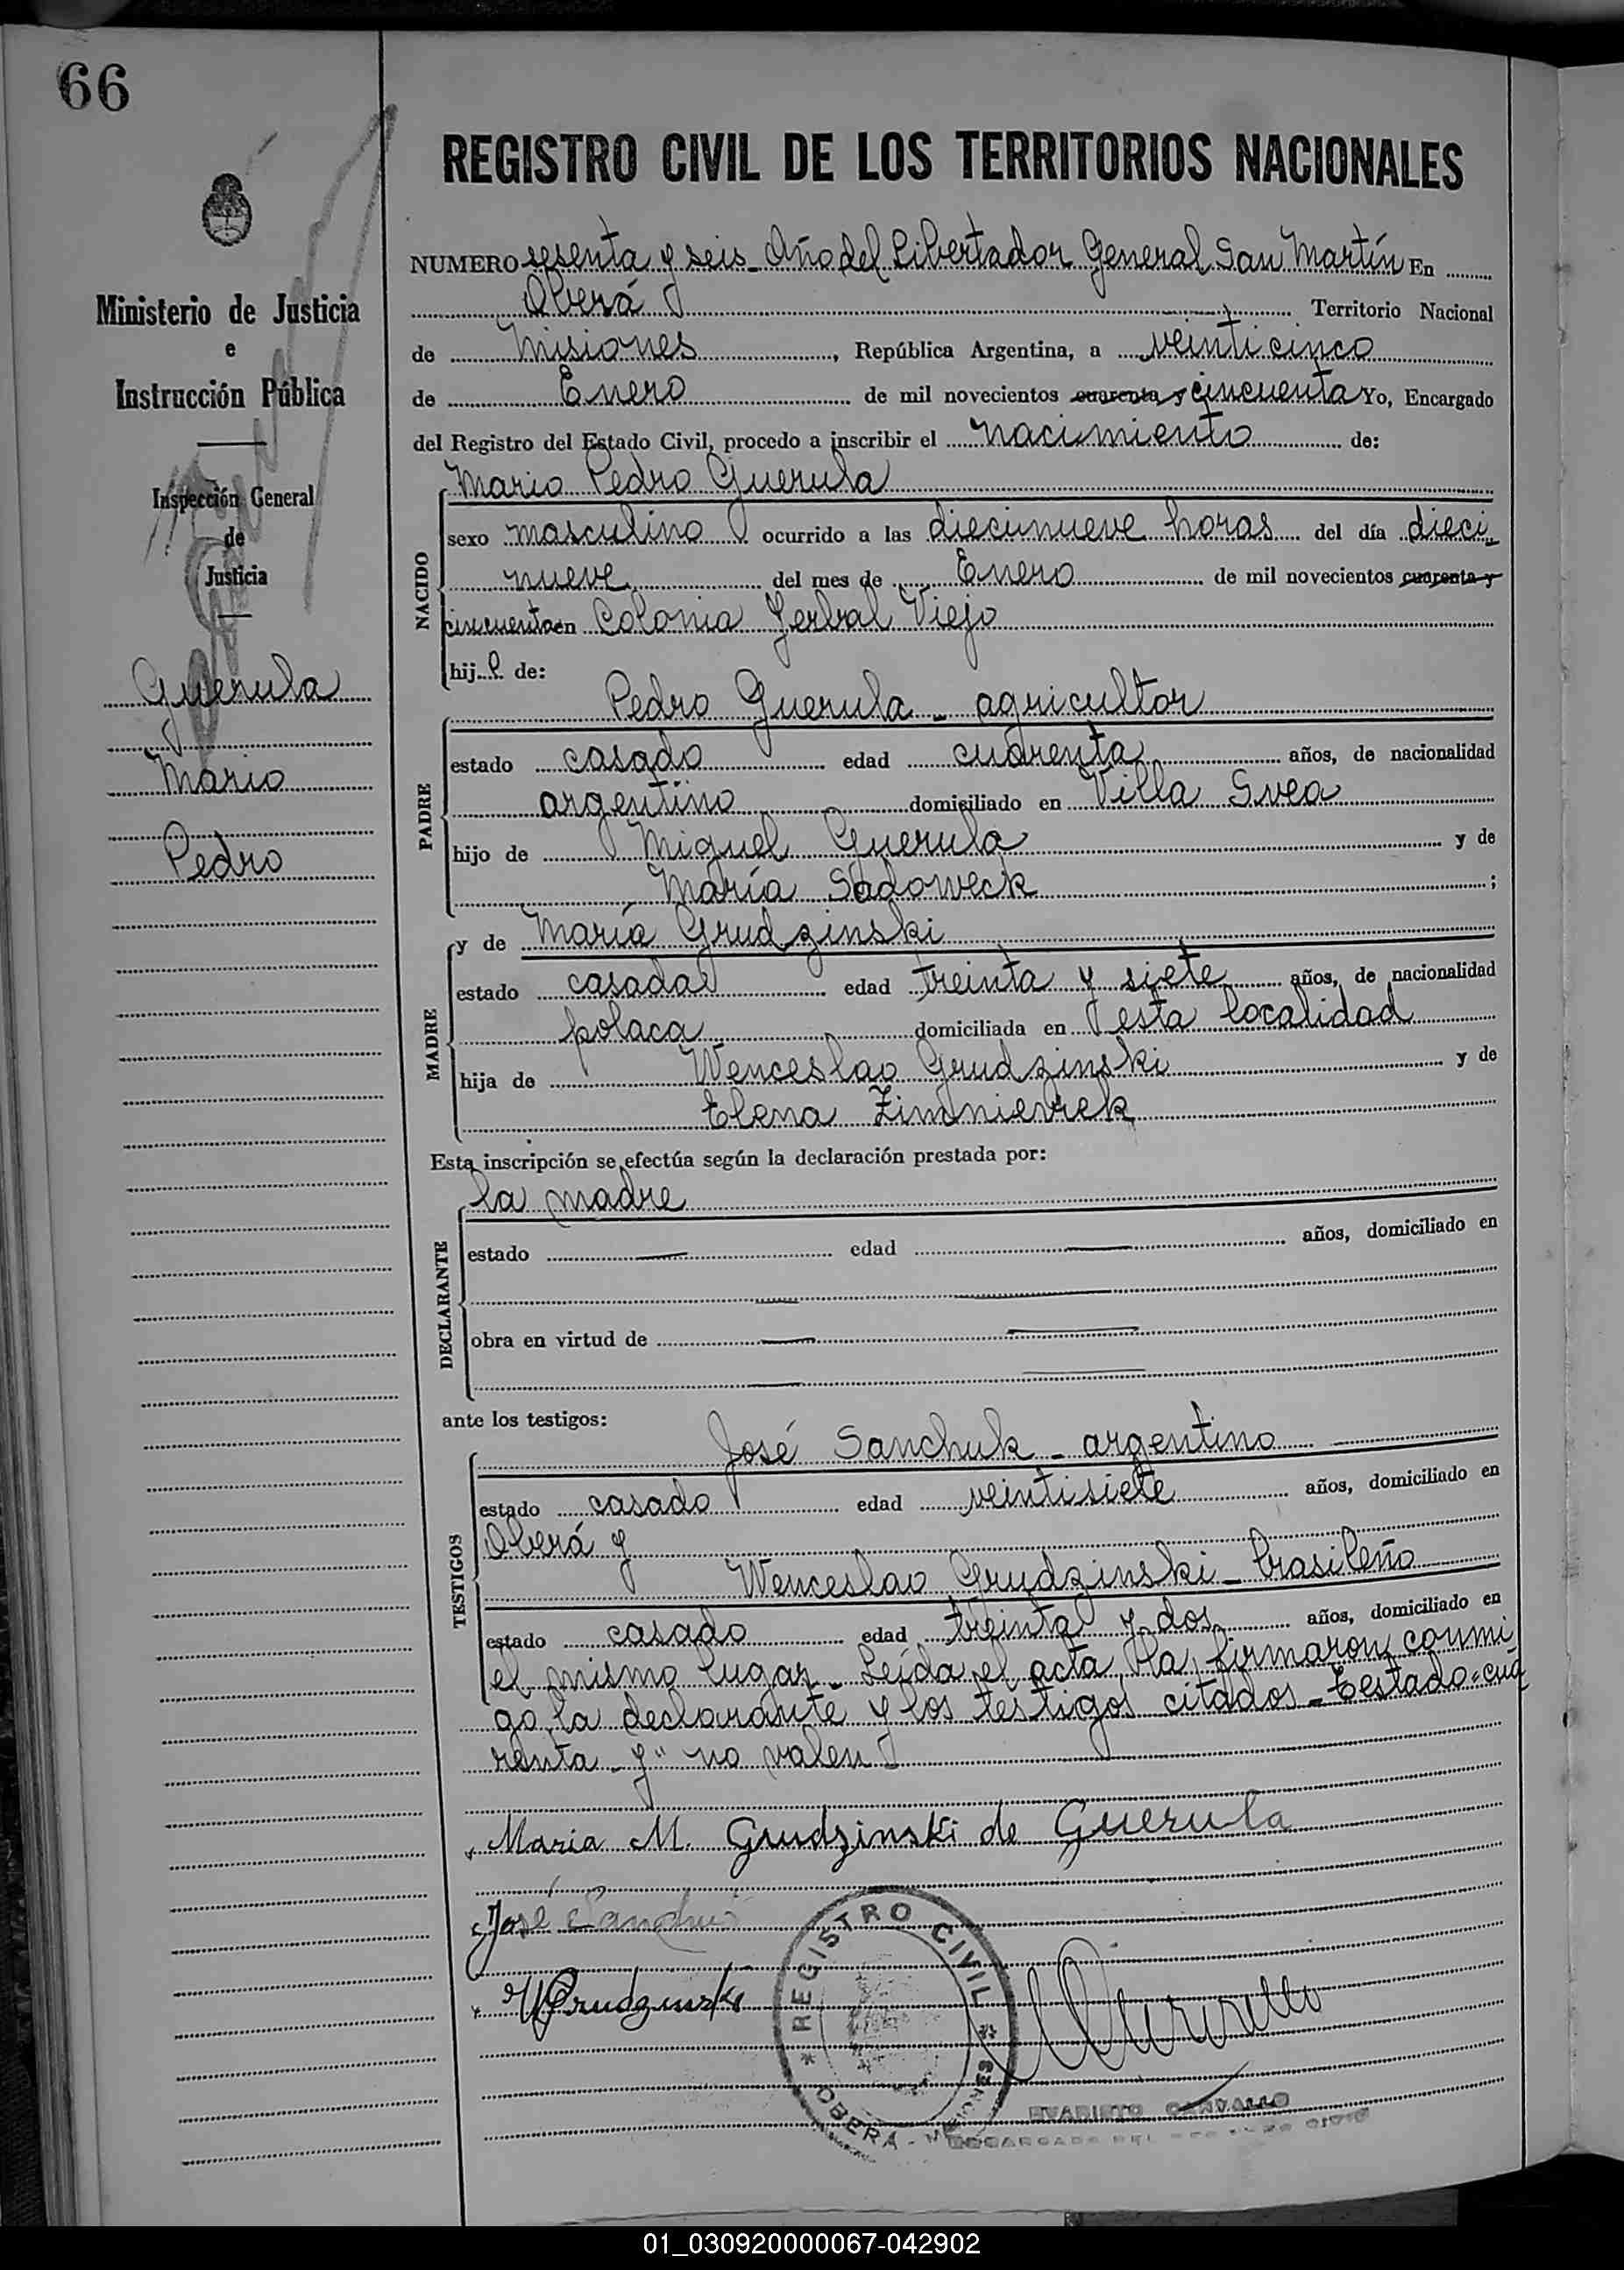 66
Ministerio de Justicia
e
Instrucción Pública
Inspección General
de
Justicia
Guerula
Mario
Pedro
REGISTRO CIVIL DE LOS TERRITORIOS NACIONALES
NUMERO sesenta y seis_ Año del Libertador General San Martín En
Oberá Territorio Nacional
de Misiones, República Argentina, a veinticinco
de Enero de mil novecientos cuarenta y cincuenta Yo, Encargado
del Registro del Estado Civil, procedo a inscribir el nacimiento de:
Mario Pedro Guerula
NACIDO
sexo masculino ocurrido a las diecinueve horas del día dieci
nueve del mes de Enero de mil novecientos cuarenta y
cincuenta en Colonia Yerbal Viejo
hijo de:
Pedro Guerula - agricultor
PADRE
estado casado edad cuarenta años, de nacionalidad
argentino domiciliado en Villa Svea
hijo de Miguel Guerula y de
María Sadoweck ;
y de María Grudzinski
MADRE
estado casada edad treinta y siete años, de nacionalidad
polaca domiciliada en esta localidad
hija de Wenceslao Grudzinski y de
Elena
Esta inscripción se efectúa según la declaración prestada por:
la madre
DECLARANTE
estado — edad — años, domiciliado en
obra en virtud de —
ante los testigos:
José Sanchuk - argentino
TESTIGOS
estado casado edad veintisiete años, domiciliado en
Oberá y
Wenceslao Grudzinski - brasileño
estado casado edad treinta y dos años, domiciliado en
el mismo lugar_ Leída el acta, la firmaron conmi
go, la declarante y los testigos citados - Testado = cua
renta y" no valen
Maria M. Grudzinski de Guerula
José
WGrudzinski
* REGISTRO CIVIL *
OBERA - MISIONES
EVARISTO CARVALLO
ENCARGADO DEL REGISTRO CIVIL
01_030920000067-042902